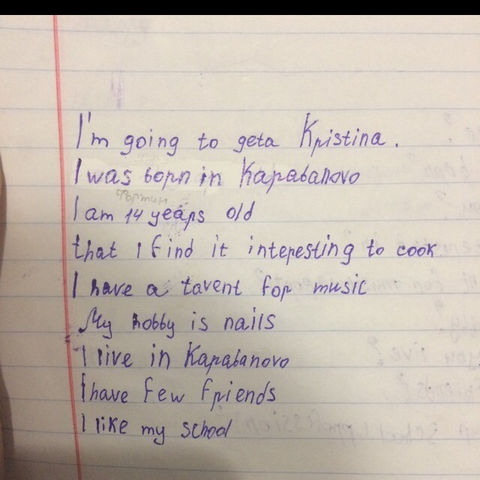 I'm going to geta Kpistina.
I was bopn in Kapabanovo
I am 14 yeaps old
that I find it intepesting to cook
I have a tavent fop music
My hobby is nails
I live in Kapabanovo
I have few fpiends
I like my school